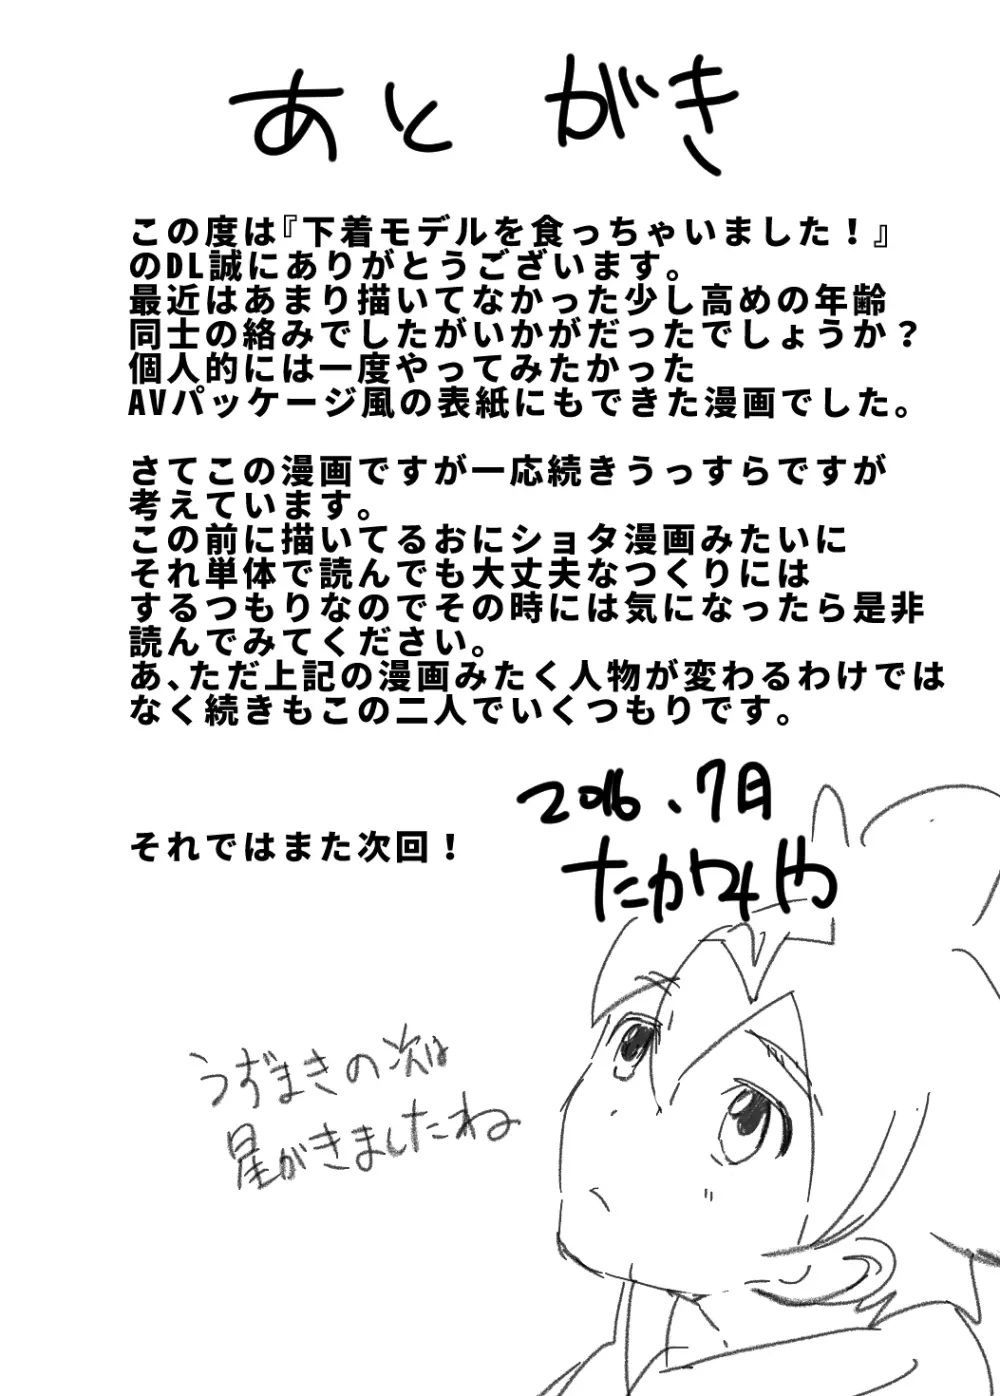 あとがき
この度は『下着モデルを食っちゃいました！』
のDL誠にありがとうございます。
最近はあまり描いてなかった少し高めの年齢
同士の絡みでしたがいかがだったでしょうか？
個人的には一度やってみたかった
AVパッケージ風の表紙にもできた漫画でした。
さてこの漫画ですが一応続きうっすらですが
考えています。
この前に描いてるおにショタ漫画みたいに
それ単体で読んでも大丈夫なつくりには
するつもりなのでその時には気になったら是非
読んでみてください。
あ、ただ上記の漫画みたく人物が変わるわけでは
なく続きもこの二人でいくつもりです。
2016、7日
それではまた次回！
うずまきの次は
星がきましたね